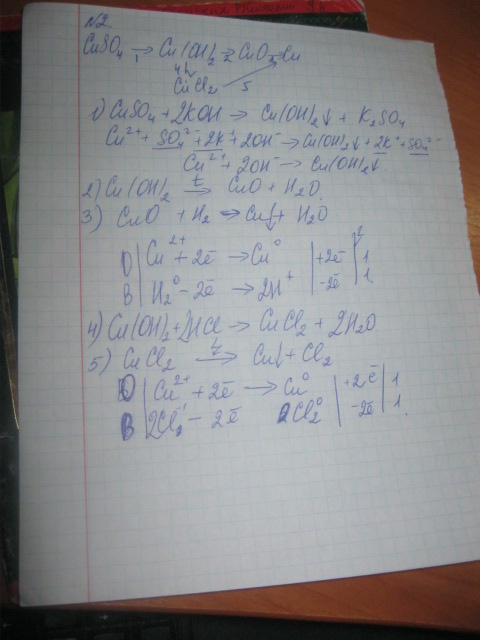 №2.
CuSO₄ →₁ Cu(OH)₂ →₂ CuO →₃ Cu
4↓ CuCl₂ 5
1) CuSO₄ + 2KOH → Cu(OH)₂↓ + K₂SO₄
Cu²⁺ + SO₄²⁻ + 2K⁺ + 2OH⁻ → Cu(OH)₂↓ + 2K⁺ + SO₄²⁻
Cu²⁺ + 2OH⁻ → Cu(OH)₂↓
2) Cu(OH)₂ →ᵗ CuO + H₂O.
3) CuO + H₂ → Cu↓ + H₂O
O | Cu²⁺ + 2ē → Cu⁰ | +2ē | 1
B | H₂⁰ - 2ē → 2H⁺ | -2ē | 1
4) Cu(OH)₂ + 2HCl → CuCl₂ + 2H₂O
5) CuCl₂ → Cu↓ + Cl₂
O | Cu²⁺ + 2ē → Cu⁰ | +2ē | 1
B | 2Cl₂⁻¹ - 2ē 2Cl₂⁰ | -2ē | 1.